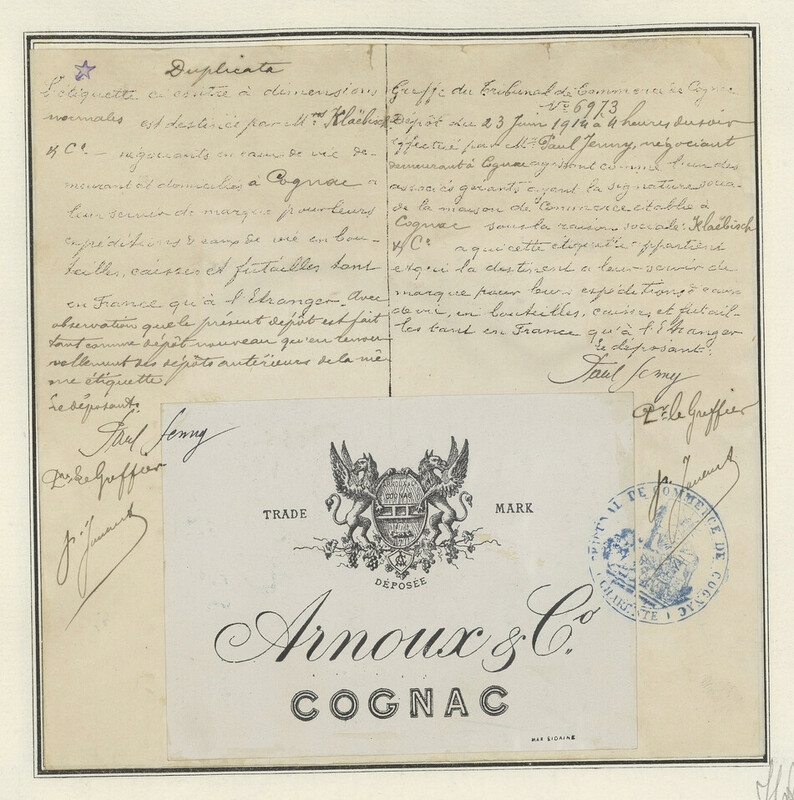 Duplicata
L'étiquette ci contre à dimensions
normales est destinée par Mrs Klaëbisch
& Cie négociants en eaux de vie de-
meurant et domiciliés à Cognac à
leur servir de marque pour leurs
expéditions d'eaux de vie en bou-
teilles, caisses et futailles tant
en France qu'à l'Etranger. Avec
observation que le présent dépôt est fait
tant comme dépôt nouveau qu'en renou-
vellement des dépôts antérieurs de la mê-
me étiquette.
Le déposant:
Paul Jenny
le Greffier
Greffe du Tribunal de Commerce de Cognac
No 6973
Dépôt du 23 Juin 1914 à 4 heures du soir
Effectué par Mr Paul Jenny, négociant
demeurant à Cognac agissant comme l'un des
associés gérants ayant la signature socia-
le de la maison de Commerce établie à
Cognac sous la raison sociale: Klaëbisch
& Cie à qui cette étiquette appartient
et qui la destinent à leur servir de
marque pour leurs expéditions d'eaux
de vie, en bouteilles, caisses et futail-
les tant en France qu'à l'Etranger
Le déposant:
Paul Jenny
le Greffier
TRADE MARK
COGNAC
DÉPOSÉE
Arnoux & Co.
COGNAC
MAX SIDAINE
TRIBUNAL DE COMMERCE DE COGNAC
CHARENTE